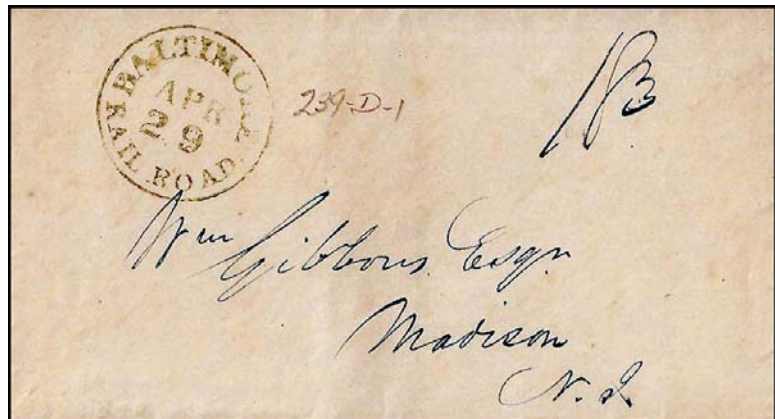 BALTIMORE
APR
29
RAIL ROAD.
239-D-1
Wm Gibbons Esqr
Madison
N. J.